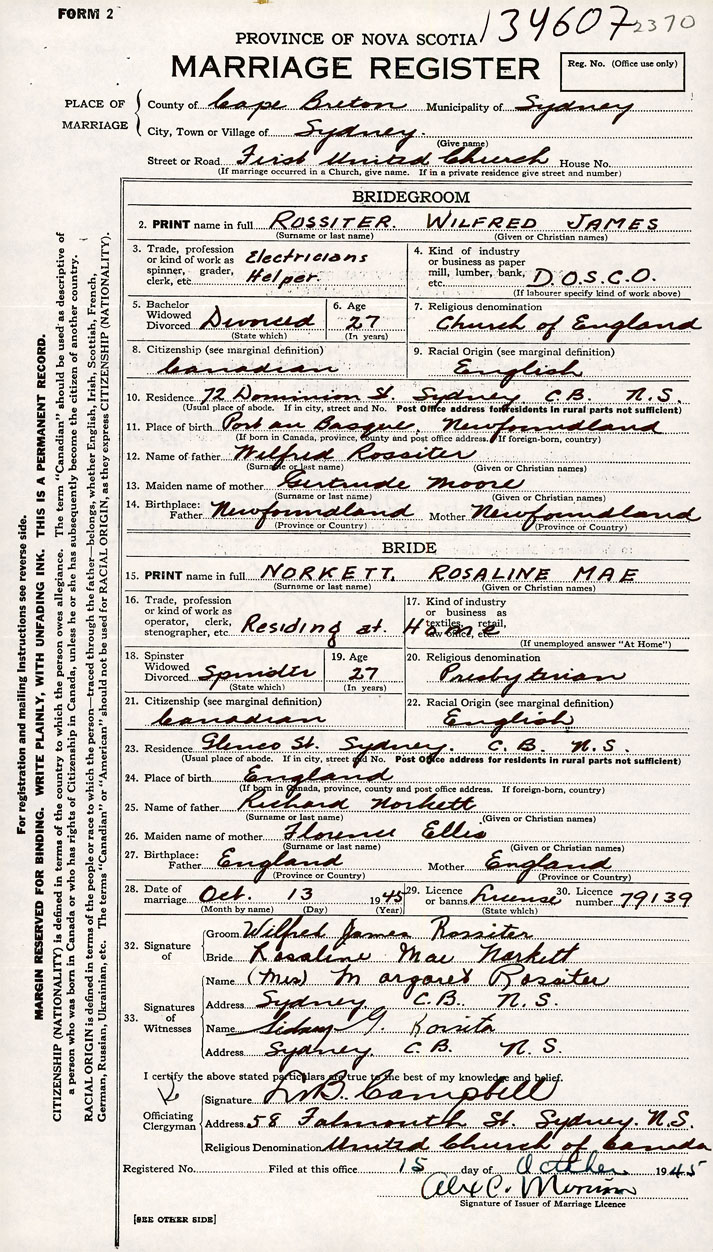 FORM 2
134607 2370
PROVINCE OF NOVA SCOTIA
MARRIAGE REGISTER
Reg. No. (Office use only)
PLACE OF MARRIAGE
County of Cape Breton Municipality of Sydney
City, Town or Village of Sydney.
(Give name)
Street or Road First United Church House No.
(If marriage occurred in a Church, give name. If in a private residence give street and number)
BRIDEGROOM
2. PRINT name in full ROSSITER. WILFRED JAMES
(Surname or last name) (Given or Christian names)
3. Trade, profession or kind of work as spinner, grader, clerk, etc. Electricians Helper
4. Kind of industry or business as paper mill, lumber, bank, etc. D.O.S.C.O.
(If labourer specify kind of work above)
5. Bachelor Widowed Divorced Divorced
(State which)
6. Age 27
(In years)
7. Religious denomination
Church of England
8. Citizenship (see marginal definition)
Canadian
9. Racial Origin (see marginal definition)
English
10. Residence 72 Dominion St. Sydney C.B. N.S.
(Usual place of abode. If in city, street and No. Post Office address for residents in rural parts not sufficient)
11. Place of birth Port au Basque, Newfoundland
(If born in Canada, province, county and post office address. If foreign-born, country)
12. Name of father Wilfred Rossiter
(Surname or last name) (Given or Christian names)
13. Maiden name of mother Gertrude Moore
(Surname or last name) (Given or Christian names)
14. Birthplace: Father Newfoundland Mother Newfoundland
(Province or Country) (Province or Country)
BRIDE
15. PRINT name in full NORKETT, ROSALINE MAE
(Surname or last name) (Given or Christian names)
16. Trade, profession or kind of work as operator, clerk, stenographer, etc. Residing at. Home
17. Kind of industry or business as textiles, retail, law office, etc.
(If unemployed answer "At Home")
18. Spinster Widowed Divorced Spinster
(State which)
19. Age 27
(In years)
20. Religious denomination
Presbyterian
21. Citizenship (see marginal definition)
Canadian
22. Racial Origin (see marginal definition)
English
23. Residence Glenco St. Sydney. C.B. N.S.
(Usual place of abode. If in city, street and No. Post Office address for residents in rural parts not sufficient)
24. Place of birth England
(If born in Canada, province, county and post office address. If foreign-born, country)
25. Name of father Richard Norkett
(Surname or last name) (Given or Christian names)
26. Maiden name of mother Florence Ellis
(Surname or last name) (Given or Christian names)
27. Birthplace: Father England Mother England
(Province or Country) (Province or Country)
28. Date of marriage Oct. 13 1945
(Month by name) (Day) (Year)
29. Licence or banns License
(State which)
30. Licence number 79139
32. Signature of
Groom Wilfred James Rossiter
Bride Rosaline Mae Norkett
33. Signatures of Witnesses
Name (Mrs) Margaret Rossiter
Address Sydney C.B. N.S.
Name Sidney G. Rossiter
Address Sydney C.B. N.S.
I certify the above stated particulars are true to the best of my knowledge and belief.
Officiating Clergyman
Signature D.B. Campbell
Address 58 Falmouth St. Sydney. N.S.
Religious Denomination United Church of Canada
Registered No. Filed at this office 15 day of October 1945
Alex C. 
Signature of Issuer of Marriage Licence
[SEE OTHER SIDE]
For registration and mailing instructions see reverse side.
MARGIN RESERVED FOR BINDING. WRITE PLAINLY, WITH UNFADING INK. THIS IS A PERMANENT RECORD.
CITIZENSHIP (NATIONALITY) is defined in terms of the country to which the person owes allegiance. The term "Canadian" should be used as descriptive of
a person who was born in Canada or who has rights of Citizenship in Canada, unless he or she has subsequently become the citizen of another country.
RACIAL ORIGIN is defined in terms of the people or race to which the person—traced through the father—belongs, whether English, Irish, Scottish, French,
German, Russian, Ukrainian, etc. The terms "Canadian" or "American" should not be used for RACIAL ORIGIN, as they express CITIZENSHIP (NATIONALITY).